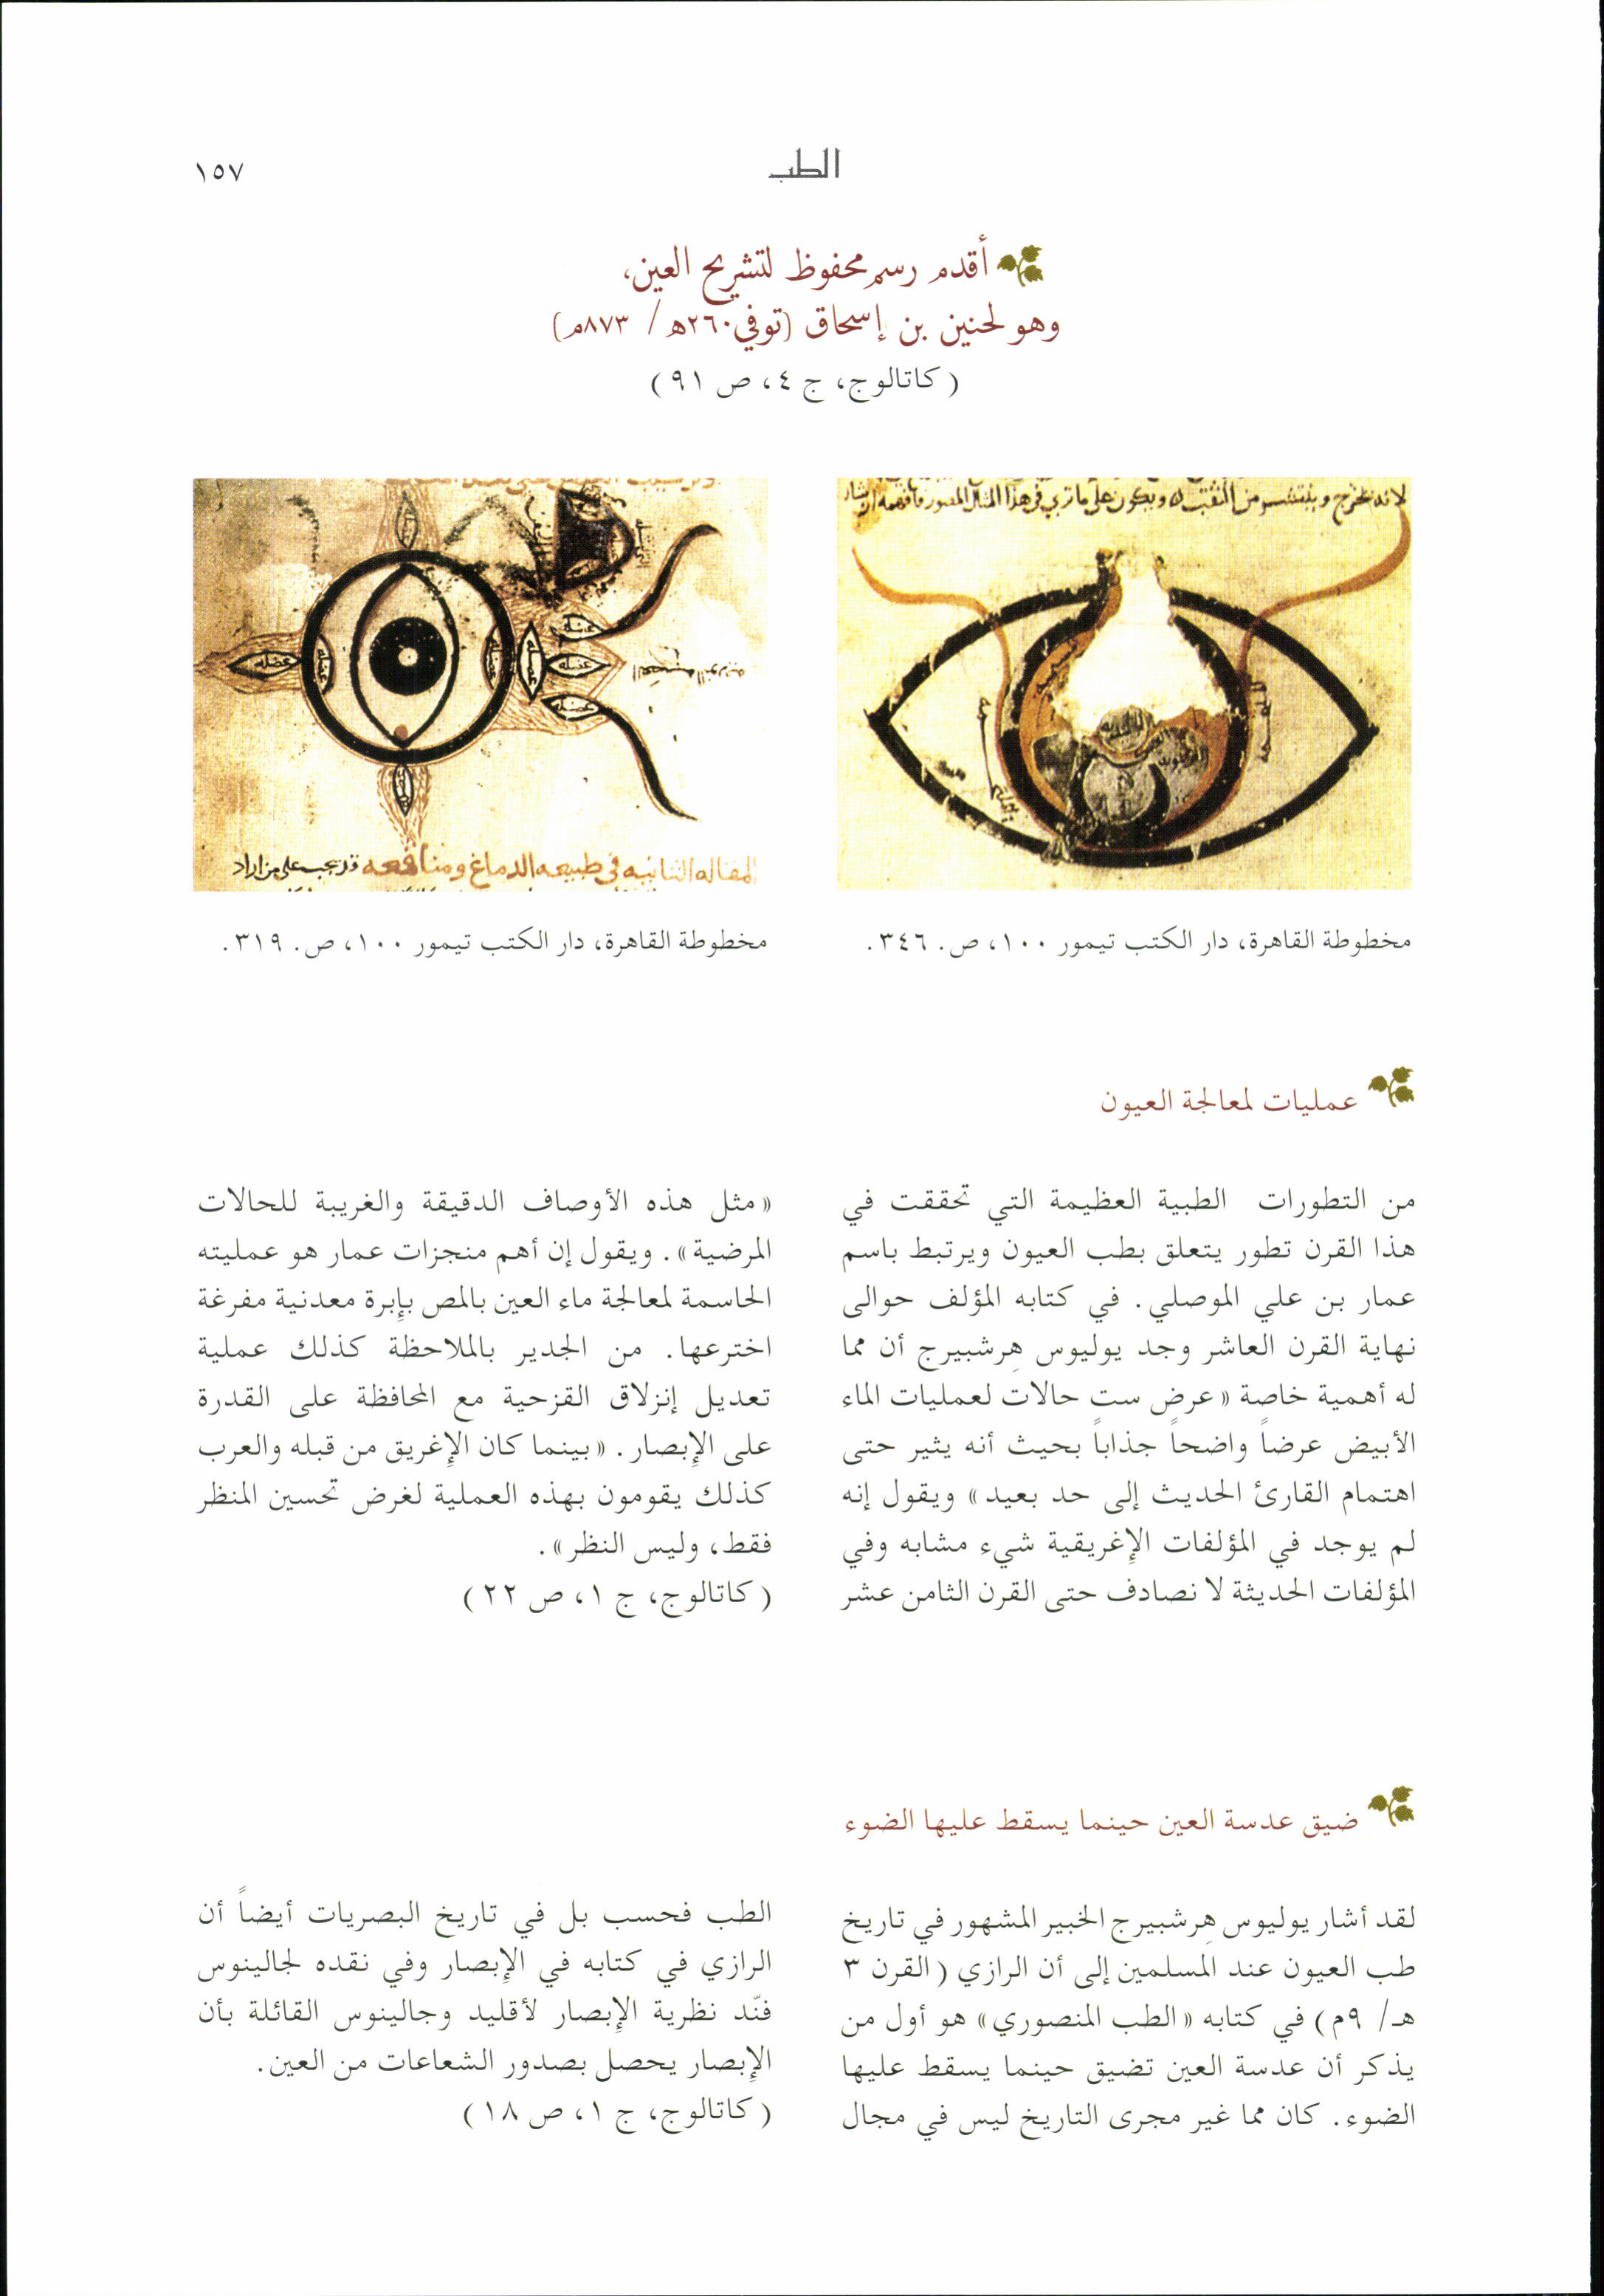 الطب
١٥٧
أقدم رسم محفوظ لتشريح العين،
وهو لحنين بن إسحاق (توفي ٢٦٠هـ/ ٨٧٣م)
(كاتالوج، ج ٤، ص ٩١)
لانه يخرج و من الثقب ويكون على ما ترى في هذا المثال المصور فافهمه
عضله
عضله
عضله
عضله
عضله
عضله
المقاله الثانيه في طبيعه الدماغ ومنافعه قد يجب على من اراد
مخطوطة القاهرة، دار الكتب تيمور ١٠٠، ص. ٣٤٦.
مخطوطة القاهرة، دار الكتب تيمور ١٠٠، ص. ٣١٩.
عمليات لمعالجة العيون
من التطورات الطبية العظيمة التي تحققت في
هذا القرن تطور يتعلق بطب العيون ويرتبط باسم
عمار بن علي الموصلي. في كتابه المؤلف حوالى
نهاية القرن العاشر وجد يوليوس هِرشبيرج أن مما
له أهمية خاصة «عرض ست حالات لعمليات الماء
الأبيض عرضاً واضحاً جذاباً بحيث أنه يثير حتى
اهتمام القارئ الحديث إلى حد بعيد» ويقول إنه
لم يوجد في المؤلفات الإغريقية شيء مشابه وفي
المؤلفات الحديثة لا نصادف حتى القرن الثامن عشر
«مثل هذه الأوصاف الدقيقة والغريبة للحالات
المرضية». ويقول إن أهم منجزات عمار هو عمليته
الحاسمة لمعالجة ماء العين بالمص بإبرة معدنية مفرغة
اخترعها. من الجدير بالملاحظة كذلك عملية
تعديل إنزلاق القزحية مع المحافظة على القدرة
على الإبصار. «بينما كان الإغريق من قبله والعرب
كذلك يقومون بهذه العملية لغرض تحسين المنظر
فقط، وليس النظر».
(كاتالوج، ج ١، ص ٢٢)
ضيق عدسة العين حينما يسقط عليها الضوء
لقد أشار يوليوس هِرشبيرج الخبير المشهور في تاريخ
طب العيون عند المسلمين إلى أن الرازي (القرن ٣
هـ/ ٩م) في كتابه «الطب المنصوري» هو أول من
يذكر أن عدسة العين تضيق حينما يسقط عليها
الضوء. كان مما غير مجرى التاريخ ليس في مجال
الطب فحسب بل في تاريخ البصريات أيضاً أن
الرازي في كتابه في الإبصار وفي نقده لجالينوس
فنّد نظرية الإبصار لأقليد وجالينوس القائلة بأن
الإبصار يحصل بصدور الشعاعات من العين.
(كاتالوج، ج ١، ص ١٨)